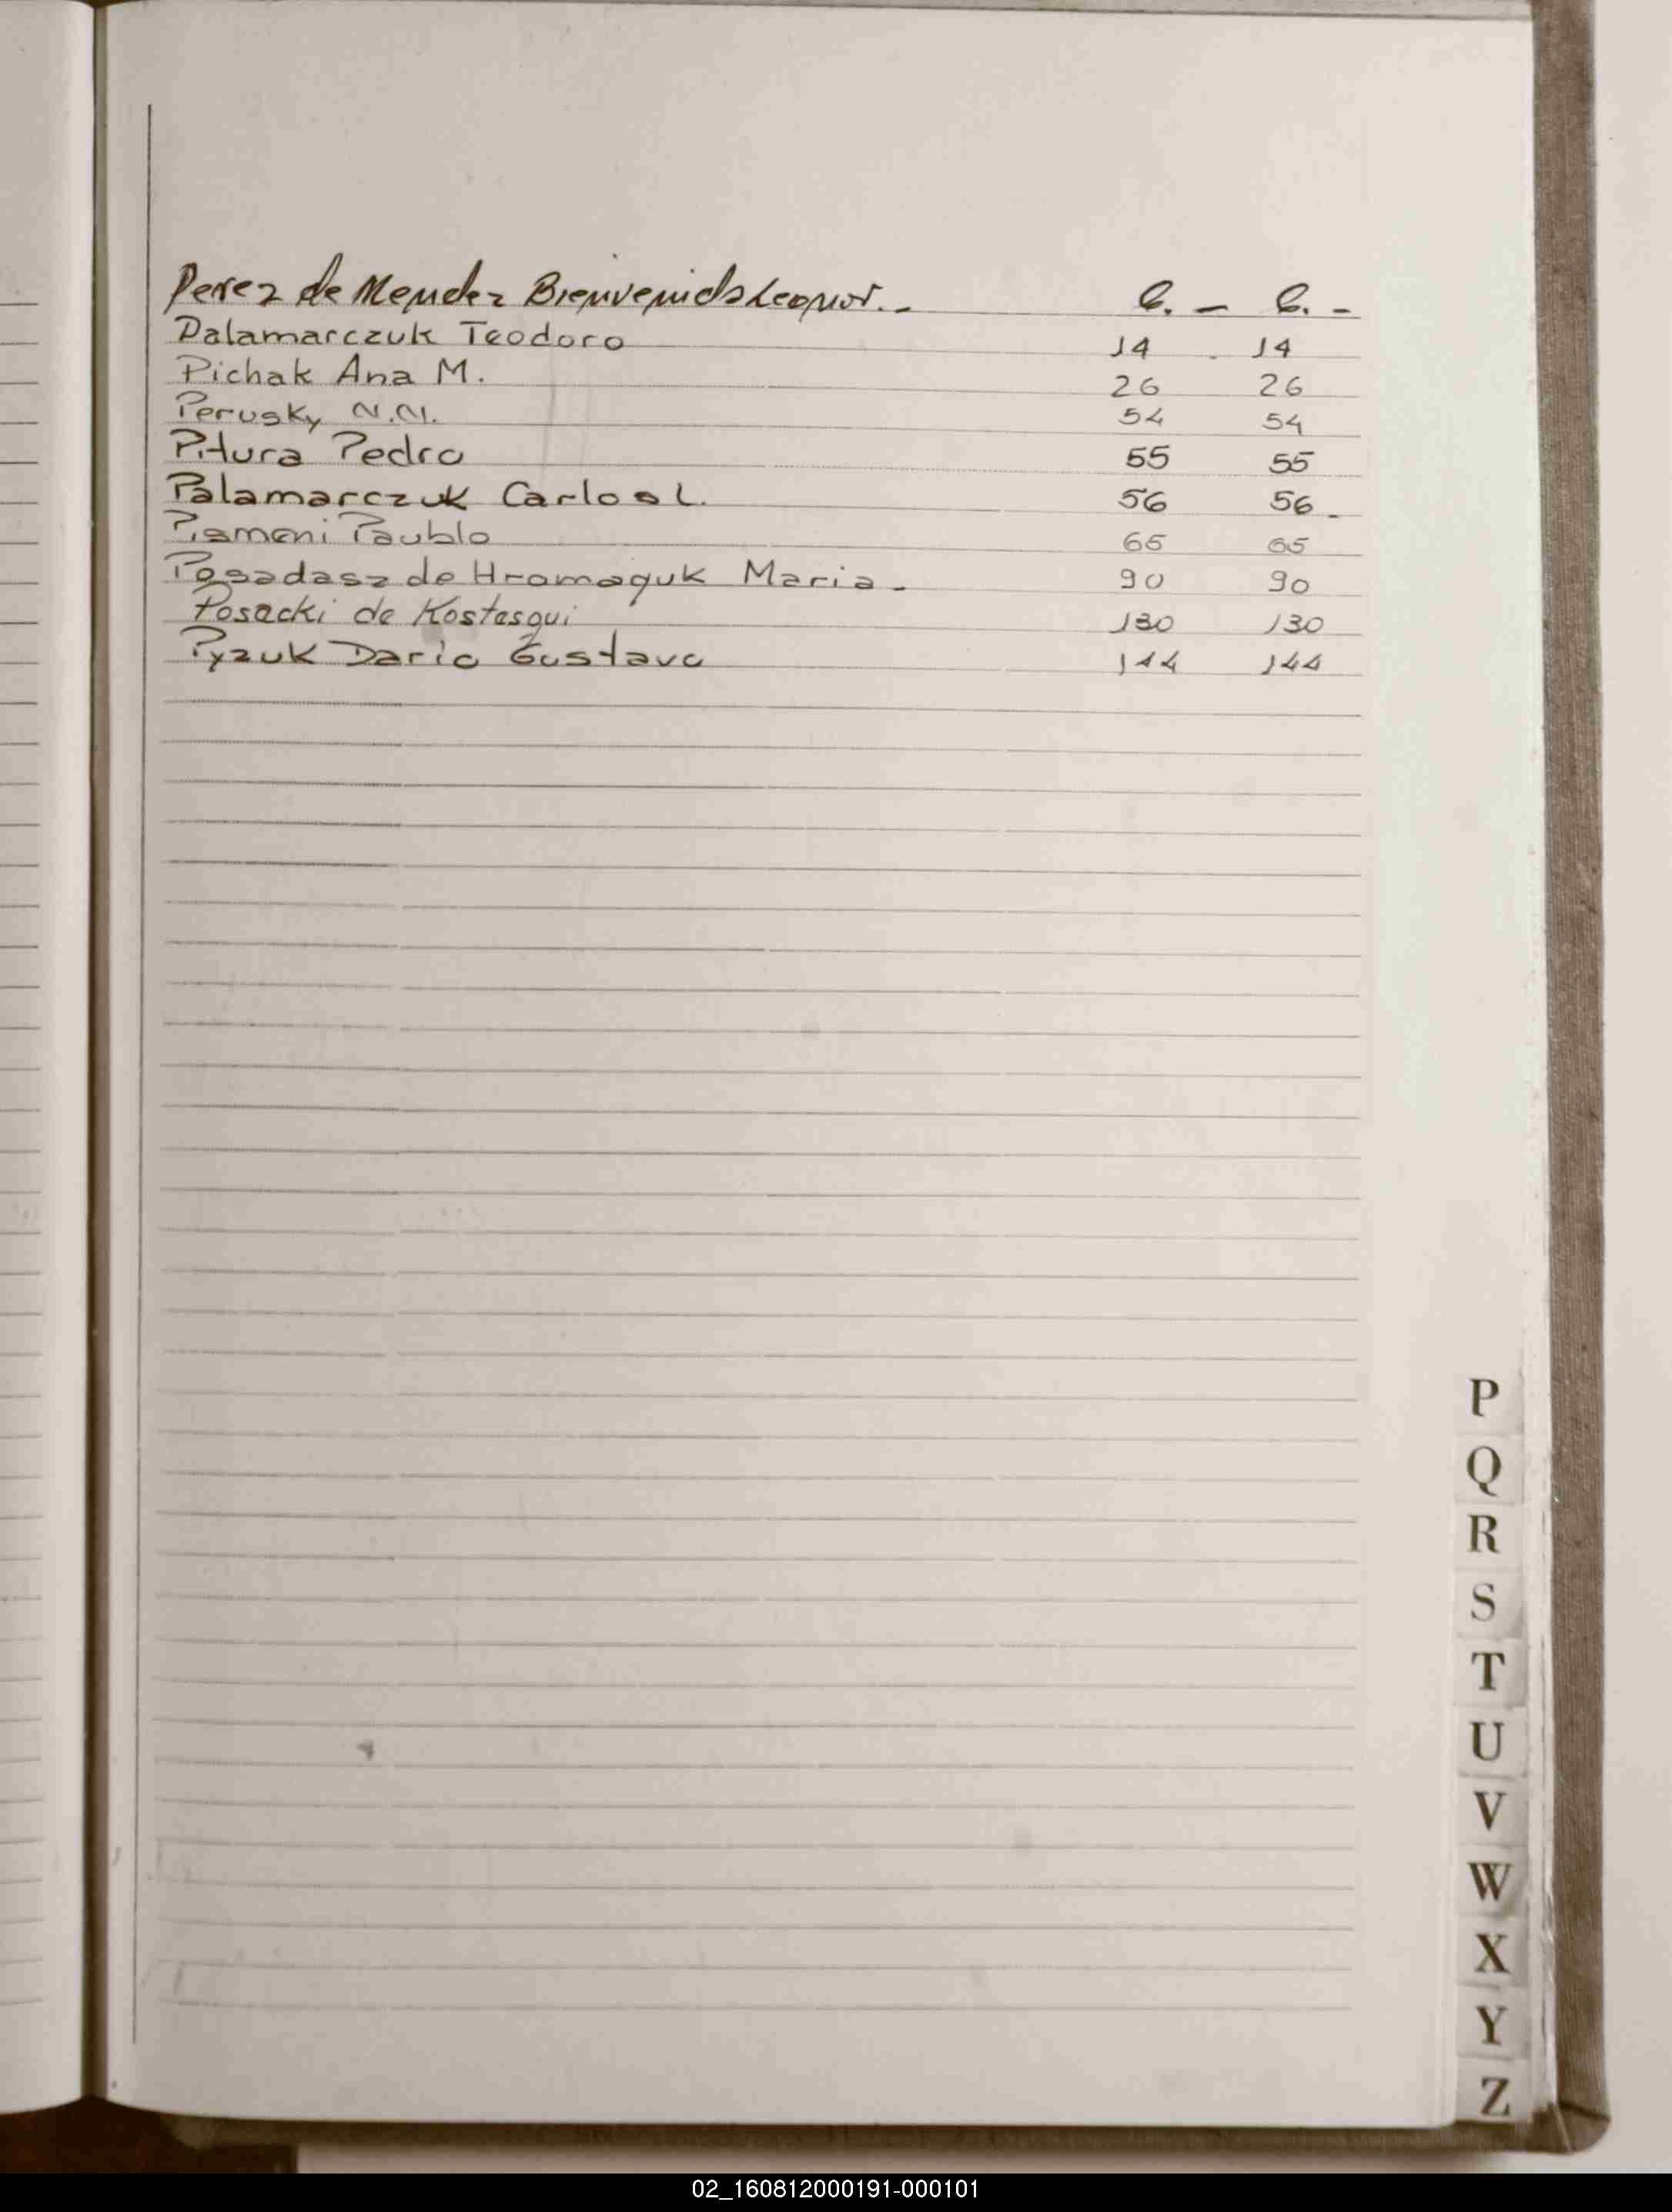 Perez de Mendez Bienvenida Leonor.- 6.- 6.-
Palamarczuk Teodoro 14 . 14
Pichak Ana M. 26 26
Perusky N.N. 54 54
Pitura Pedro 55 55
Palamarczuk Carlos L. 56 56.
Pismeni Paublo 65 65
Posadasz de Hromaquk Maria.- 90 90
Posacki de Kostesqui 130 130
Pyzuk Dario Gustavo 144 144
P
Q
R
S
T
U
V
W
X
Y
Z
02_160812000191-000101